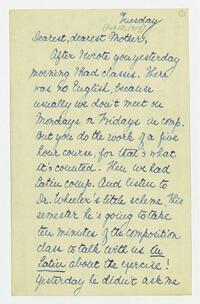 Tuesday
Dearest, dearest Mother,
After I wrote you yesterday
morning I had classes. There
was no English, because
usually we don't meet on
Mondays or Fridays in comp.
But you do the work of a five
hour course, for that's what
it's counted. Then we had
Latin comp. And listen to
Dr. Wheeler's little scheme. This
semester he's going to take
ten minutes of the composition
class to talk with us in
Latin about the exercise!
Yesterday he didn't ask me